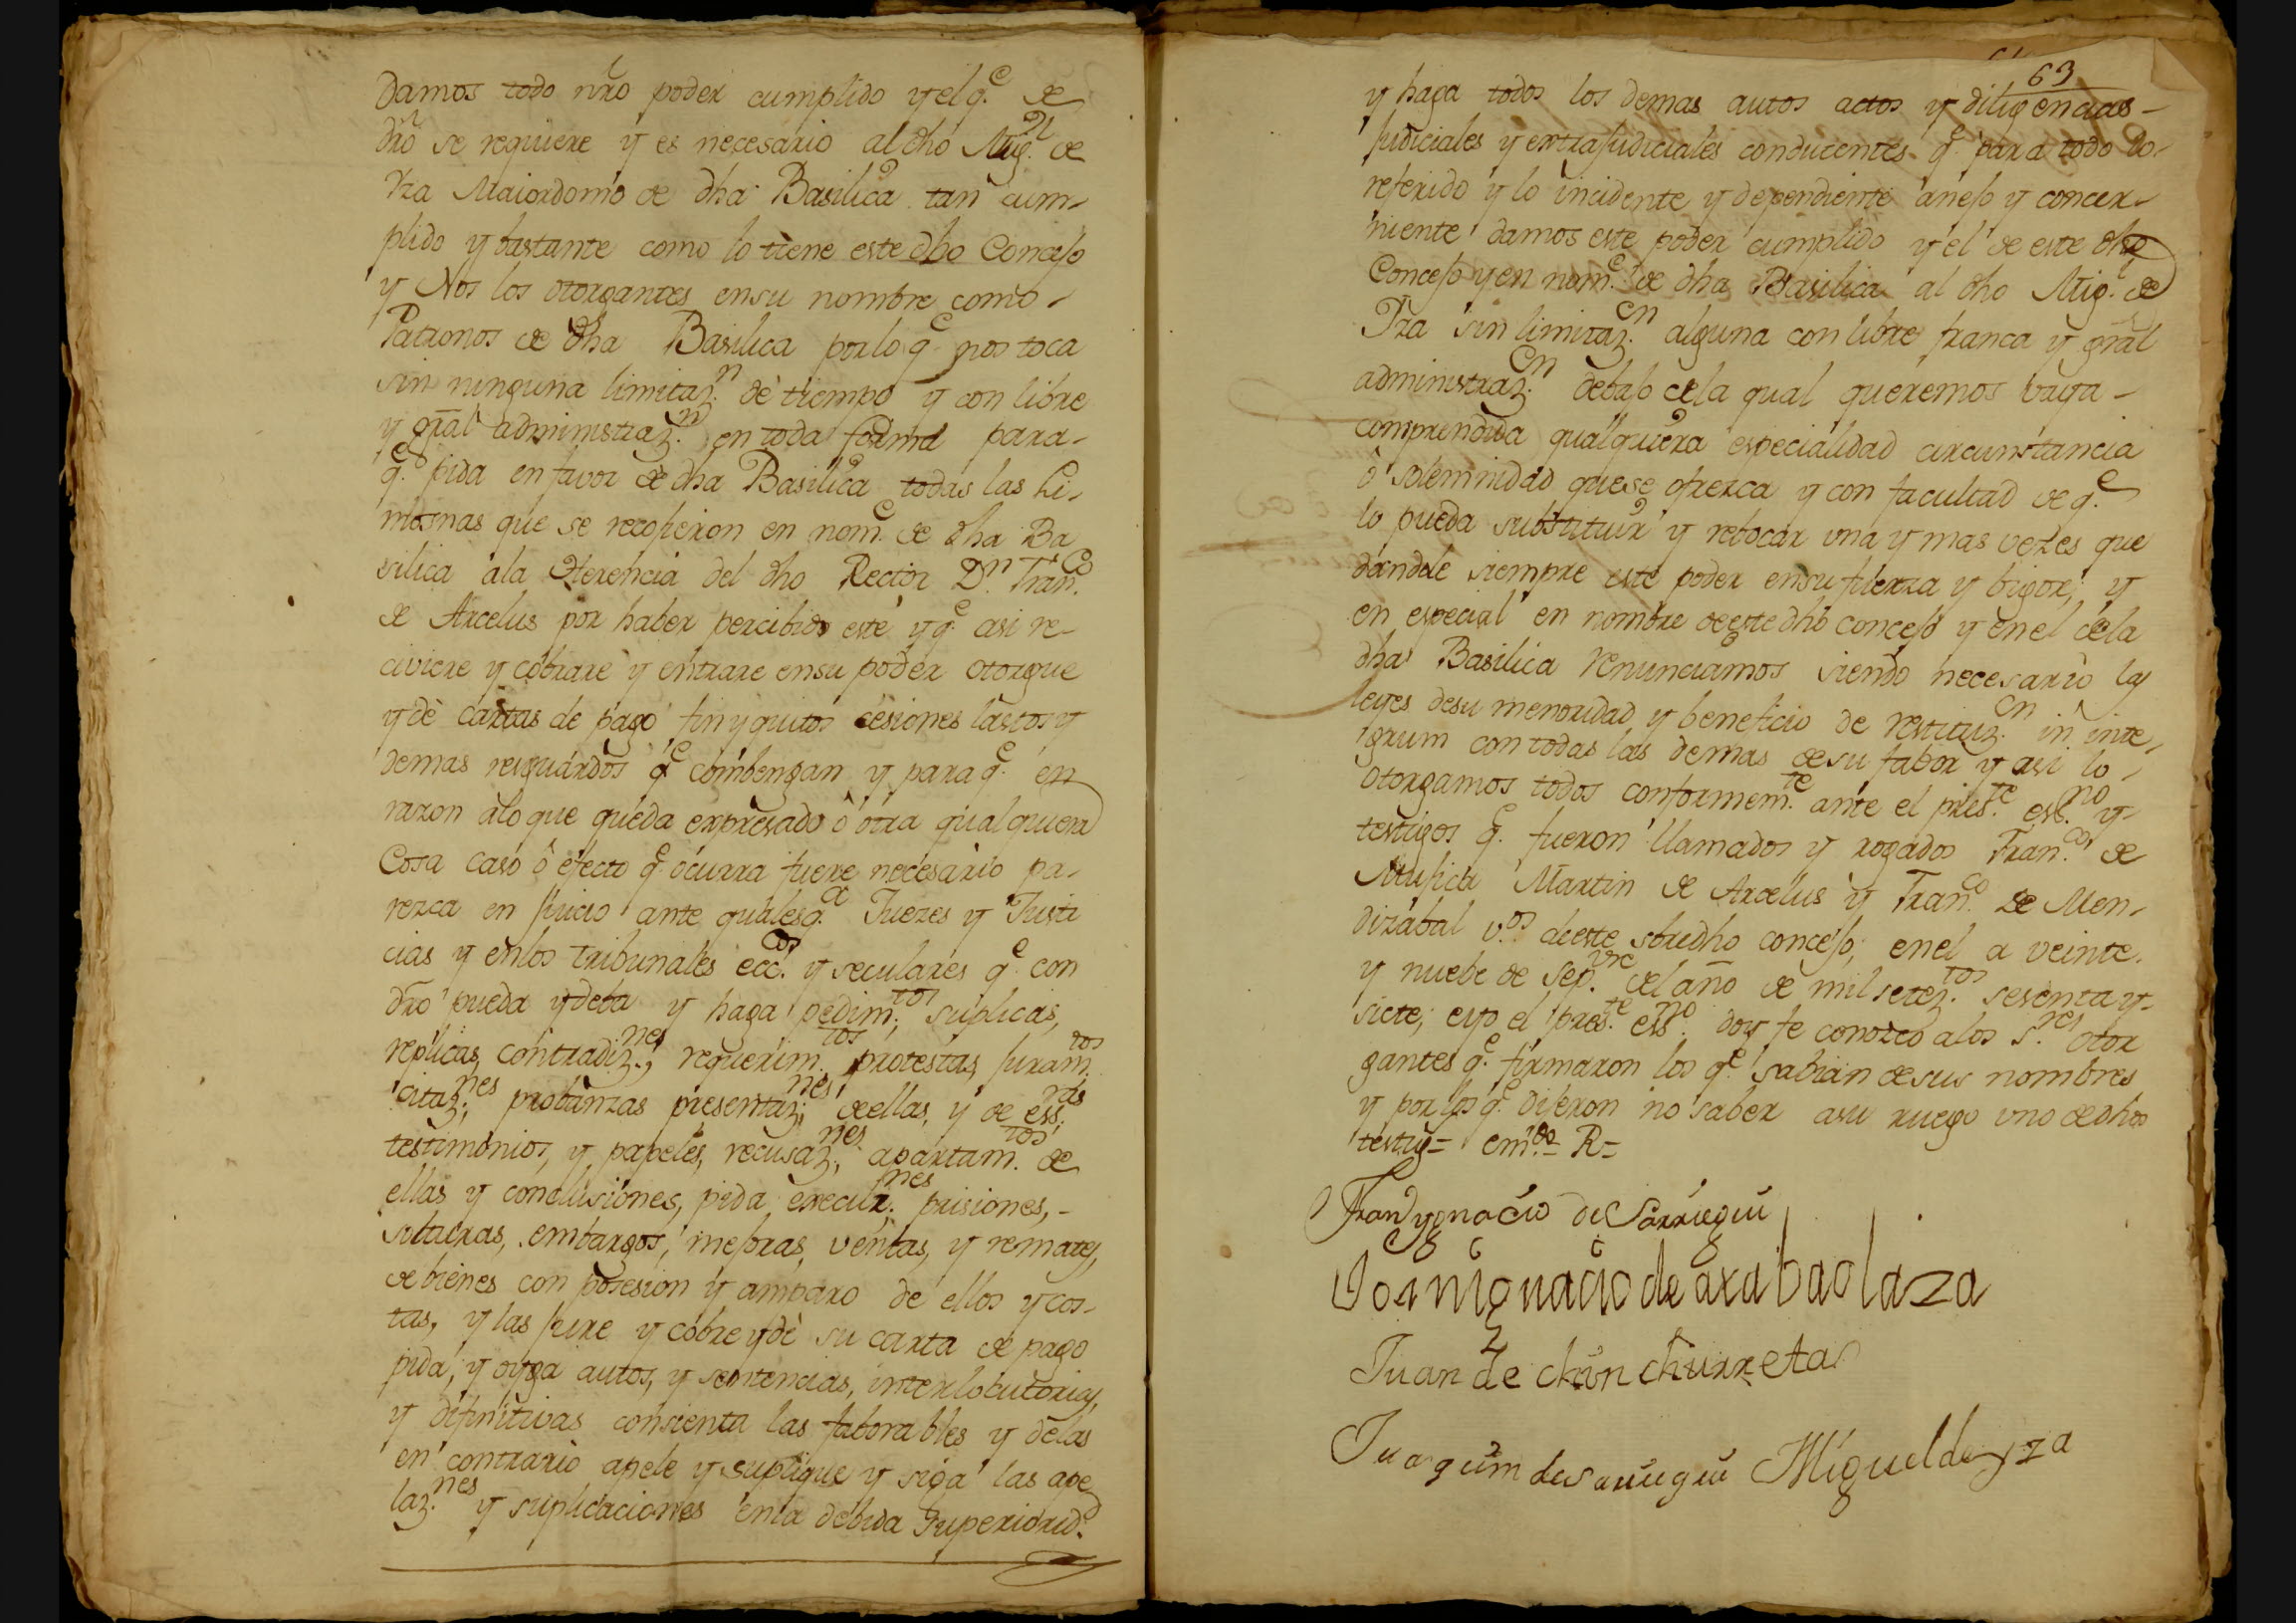 Damos todo nr̃o poder cumplido y el q.e de
dr̃o se requiere y es necesario al dho Mig.l de
Yza Maiordomo de dha Basilica tan cum-
plido y bastante como lo tiene este dho Concejo
y Nos los otorgantes en su nombre como
Patronos de dha Basilica por lo q.e nos toca
sin ninguna limitaz.n de tiempo y con libre
y gr̃al administraz.n en toda forma para
q.e pida en favor de dha Basilica todas las Li-
mosnas que se recojieron en nom.e de dha Ba
silica à la Herencia del dho Rector D.n Fran.co
de Arcelus por haber percibido este y q.e asi re-
civiere y cobrare y entrare en su poder otorgue
y dè cartas de pago finyquitos cesiones lastos y
demas resguardos q.e combengan y para q.e en
razon à lo que queda expresado ò otra qualquiera
Cosa caso ò efecto q.e ocurra fuere necesario pa-
rezca en Juicio ante qualesq.a Juezes y Justi
cias y en los tribunales ecc.cos y seculares q.e con
dr̃o pueda y deba y haga pedim.tos, suplicas,
replicas, contradiz.nes, requerim.tos protestas, Juram.tos
citaz.nes, probanzas presentaz.nes de ellas, y de ess.ras,
testimonios, y papeles, recusaz.nes, apartam.tos de
ellas y conclusiones, pida execuz.nes prisiones,
solturas, embargos, mejoras, ventas, y remates,
de bienes con posesion y amparo de ellos y cos-
tas, y las jure y cobre y dè su carta de pago
pida, y oyga autos, y sentencias, interlocutorias,
y difinitivas consienta las faborables y de las
en contrario apele y suplique y siga las ape
laz.nes y suplicaciones en la debida Superiorid.d
63
y haga todos los demas autos actos y diligencias
Judiciales y extraJudiciales conducentes q.e para todo lo
referido y lo incidente y dependiente anejo y concer-
niente damos este poder cumplido y el de este dho
Concejo y en nom.e de dha Basilica al dho Mig.l de
Yza sin limitaz.cn alguna con libre franca y gr̃al
administraz.cn debajo de la qual queremos vaya
comprendida qualquiera especialidad circunstancia
ò solemnidad que se ofrezca y con facultad de q.e
lo pueda substituir y rebocar una y mas vezes que
dandole siempre este poder en su fuerza y bigor; y
en especial en nombre de este dho concejo y en el de la
dha Basilica renunciamos siendo necesario las
leyes de su menoridad y beneficio de restituz.cn in inte-
igrum con todas las demas de su fabor y asi lo
otorgamos todos conformem.te ante el pres.te ess.no y
testigos q.e fueron llamados y rogados Fran.co de
Mujica Martin de Arcelus y Fran.co de Men-
dizabal v.os de este sbredho concejo, en el a veinte
y nuebe de Sep.vre del año de mil setez.tos sesenta y
siete; e yo el pres.te ess.no doy fe conozco a los S.res otor
gantes q.e firmaron los q.e sabian de sus nombres
y por los q.e dijeron no saber a su ruego uno de dhos
testig= em.do= R=
Fran Ygnacio de Sarriegui
Josnignacio de arabaolaza
Juan de chinchurreta
Juaquin de Sarriegui Miguel de yza